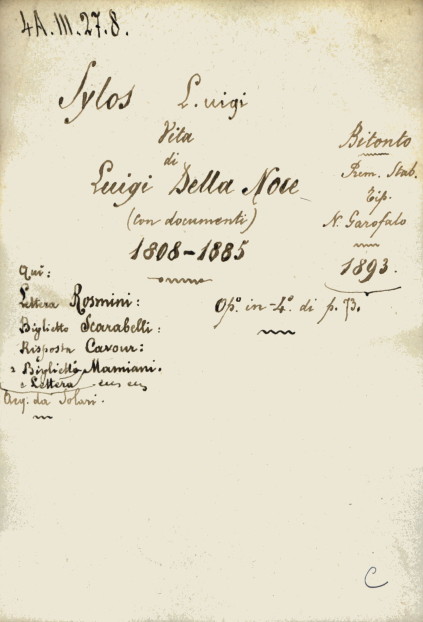 4A.III.27.8.
Sylos Luigi
Vita
di
Luigi Della Noce
(con documenti)
1808-1885
Bitonto
Prem. Stab.
Tip.
N. Garofalo
1893.
Opº. in-4º. di p. 73.
Qui:
Lettera Rosmini:
Biglietto Scarabelli:
Risposta Cavour:
2 Biglietti Mamiani.
e Lettera
Acq. da Solari.
C